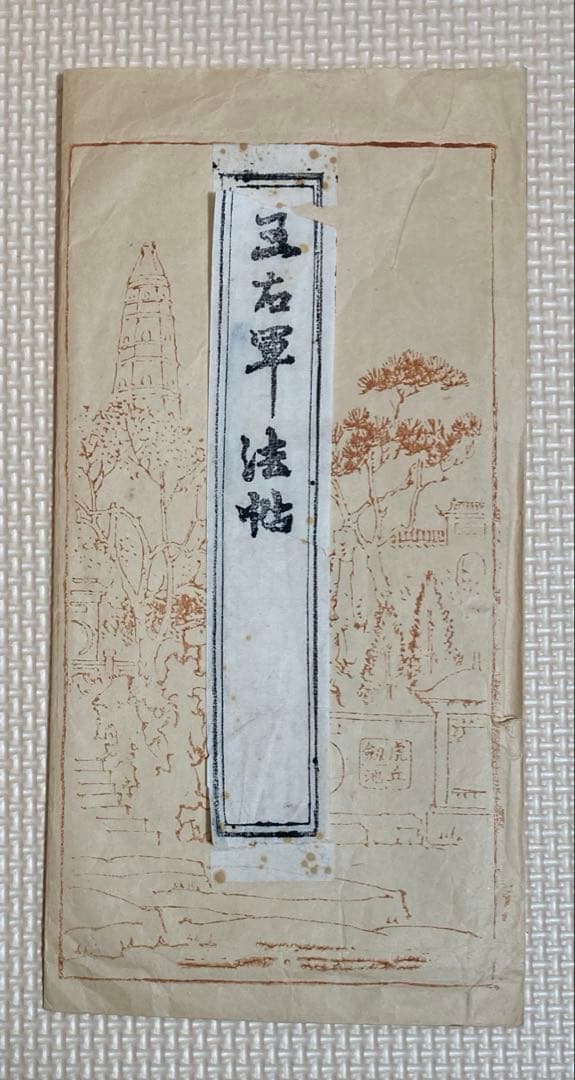 王右軍法帖
虎丘
劒池